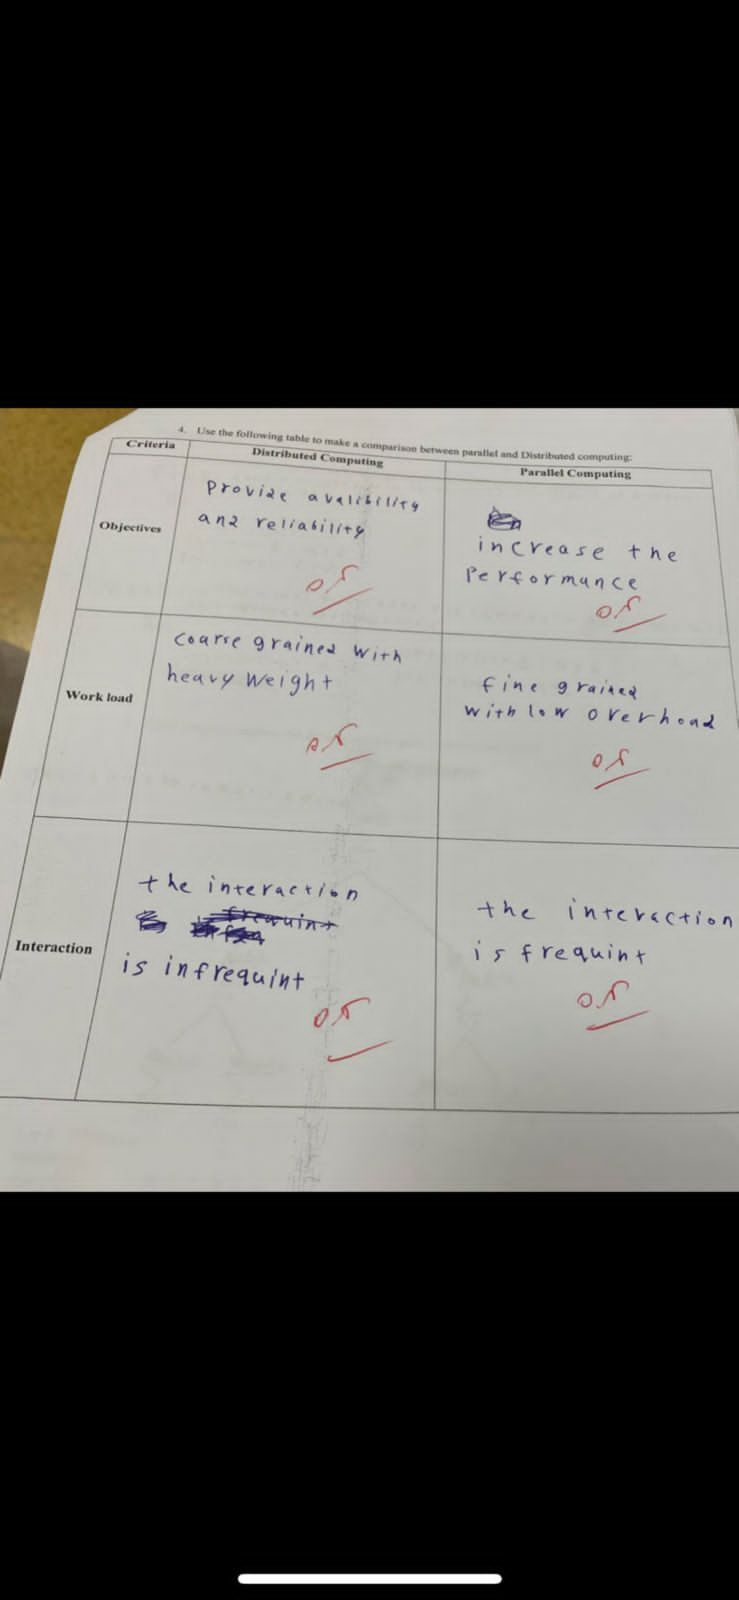 4. Use the following table to make a comparison between parallel and Distributed computing:
Criteria
Distributed Computing
Parallel Computing
Objectives
Provide avelibility
and reliability
increase the
Performance
Work load
coarse grained with
heavy weight
fine grained
with low overhead
Interaction
the interaction
is infrequint
the interaction
is frequint